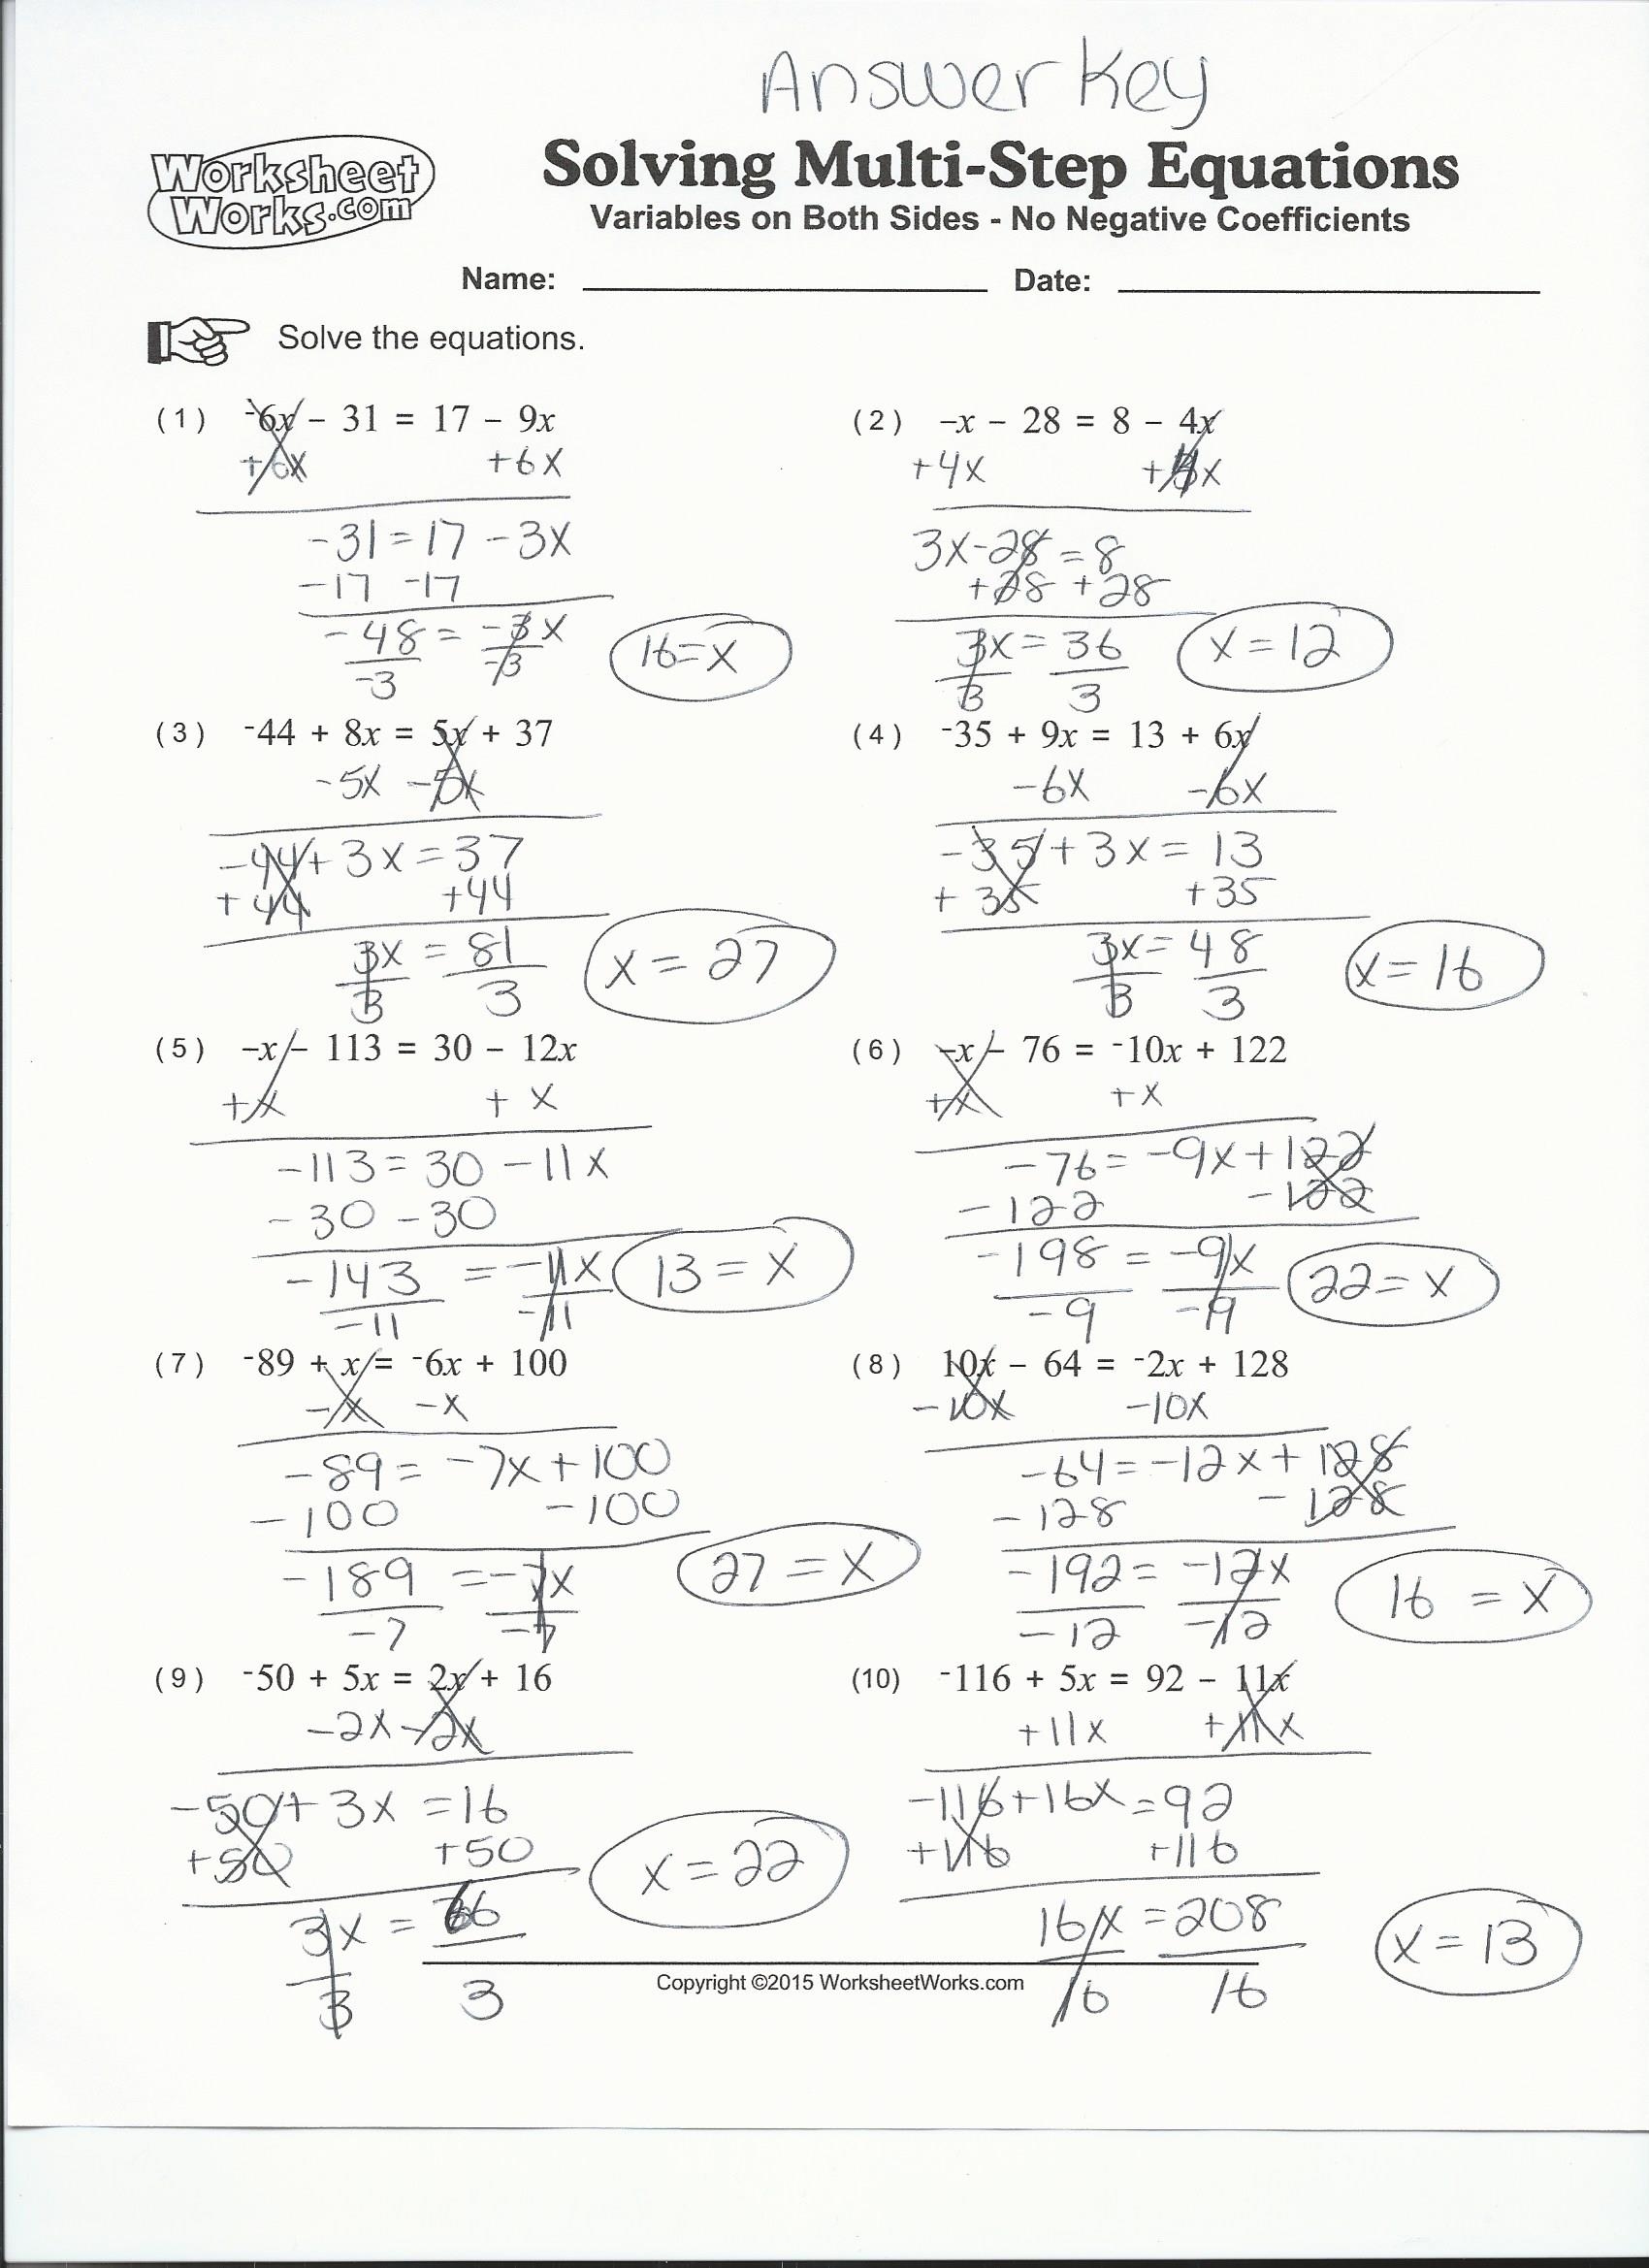 Answer Key
Worksheet
Works.com
Solving Multi-Step Equations
Variables on Both Sides - No Negative Coefficients
Name: Date:
Solve the equations.
(1) -6x - 31 = 17 - 9x
+6x +6x
-31 = 17 - 3x
-17 -17
-48 = -3x
-3 -3
16 = x
(2) -x - 28 = 8 - 4x
+4x +4x
3x - 28 = 8
+28 +28
3x = 36
3 3
x = 12
(3) -44 + 8x = 5x + 37
-5x -5x
-44 + 3x = 37
+44 +44
3x = 81
3 3
x = 27
(4) -35 + 9x = 13 + 6x
-6x -6x
-35 + 3x = 13
+35 +35
3x = 48
3 3
x = 16
(5) -x - 113 = 30 - 12x
+x +x
-113 = 30 - 11x
-30 -30
-143 = -11x
-11 -11
13 = x
(6) -x - 76 = -10x + 122
+x +x
-76 = -9x + 122
-122 -122
-198 = -9x
-9 -9
22 = x
(7) -89 + x = -6x + 100
-x -x
-89 = -7x + 100
-100 -100
-189 = -7x
-7 -7
27 = x
(8) 10x - 64 = -2x + 128
-10x -10x
-64 = -12x + 128
-128 -128
-192 = -12x
-12 -12
16 = x
(9) -50 + 5x = 2x + 16
-2x -2x
-50 + 3x = 16
+50 +50
3x = 66
3 3
x = 22
(10) -116 + 5x = 92 - 11x
+11x +11x
-116 + 16x = 92
+116 +116
16x = 208
16 16
x = 13
Copyright ©2015 WorksheetWorks.com